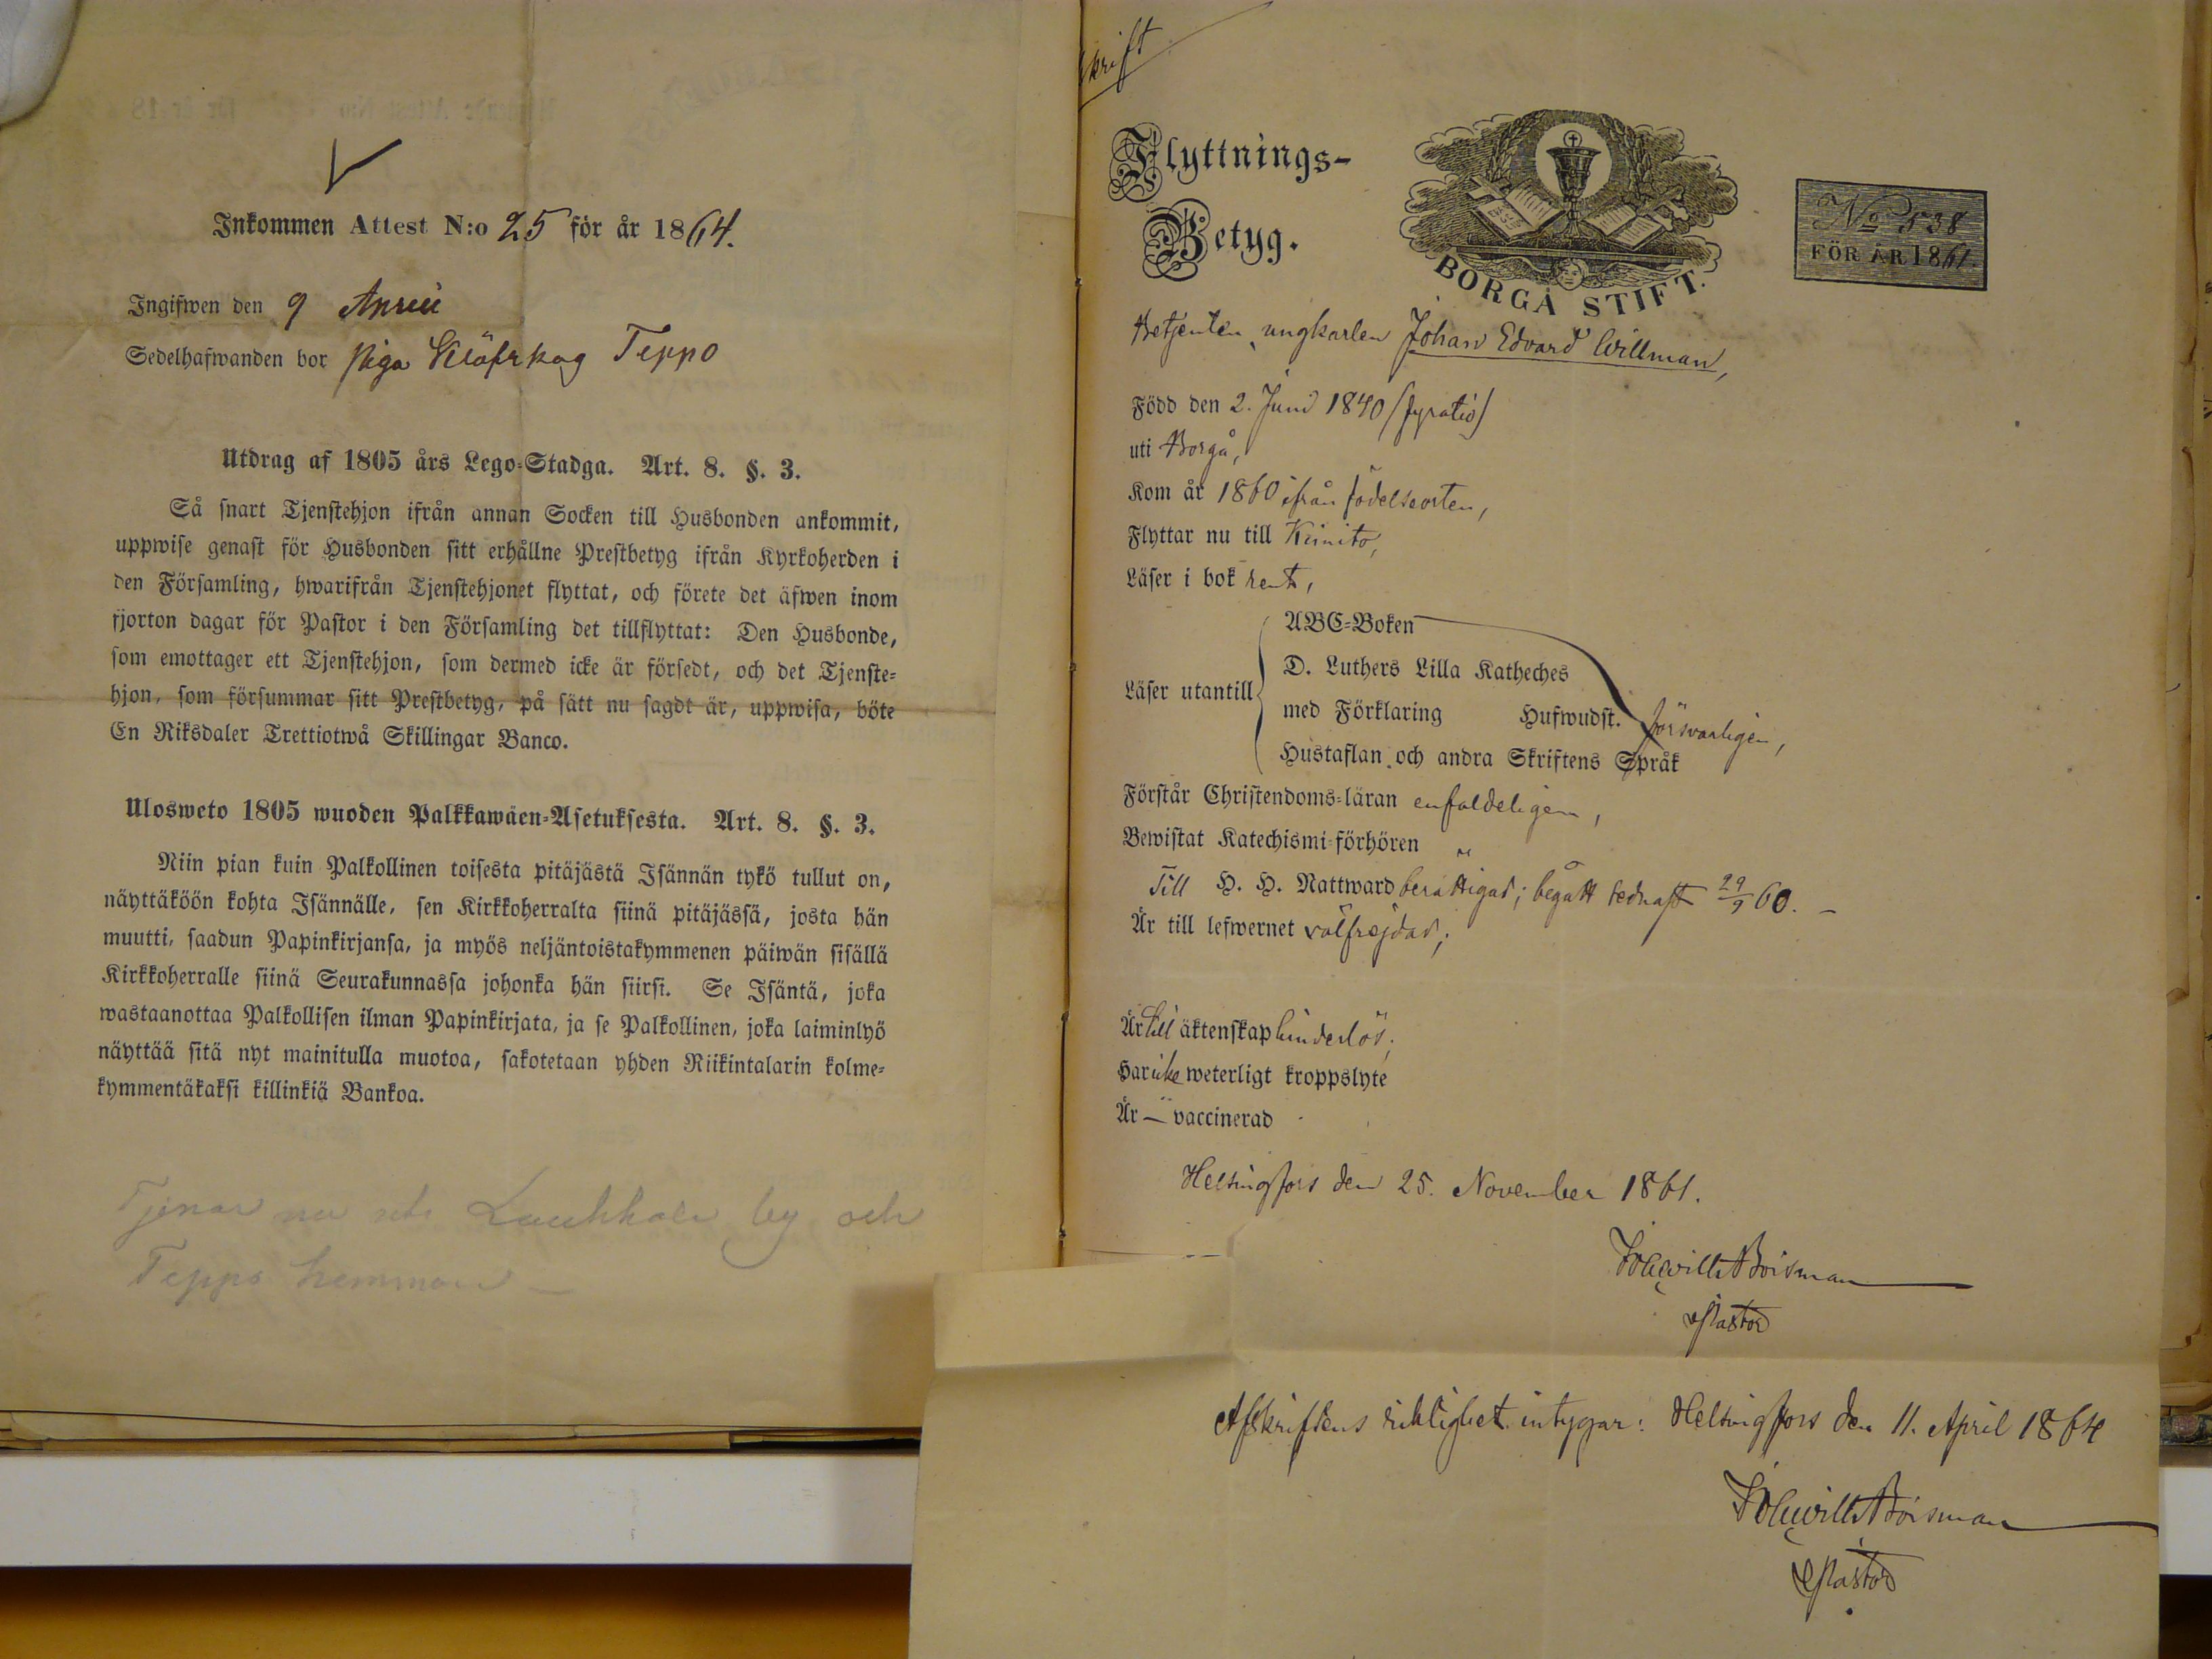 Inkommen Attest N:o 25 för år 1864.
Ingifwen den 9 April
Sedelhafwanden bor Piga Klöfskog Teppo
Utdrag af 1805 års Lego-Stadga. Art. 8. §. 3.
Så snart Tjenstehjon ifrån annan Socken till Husbonden ankommit,
uppwise genast för Husbonden sitt erhållne Prestbetyg ifrån Kyrkoherden i
den Församling, hwarifrån Tjenstehjonet flyttat, och förete det äfwen inom
fjorton dagar för Pastor i den Församling det tillflyttat: Den Husbonde,
som emottager ett Tjenstehjon, som dermed icke är försedt, och det Tjenste-
hjon, som försummar sitt Prestbetyg, på sätt nu sagdt är, uppwisa, böte
En Riksdaler Trettiotwå Skillingar Banco.
Ulosweto 1805 wuoden Palkkawäen-Asetuksesta. Art. 8. §. 3.
Niin pian kuin Palkollinen toisesta pitäjästä Isännän tykö tullut on,
näyttäköön kohta Isännälle, sen Kirkkoherralta siinä pitäjässä, josta hän
muutti, saadun Papinkirjansa, ja myös neljäntoistakymmenen päiwän sisällä
Kirkkoherralle siinä Seurakunnassa johonka hän siirsi. Se Isäntä, joka
wastaanottaa Palkollisen ilman Papinkirjata, ja se Palkollinen, joka laiminlyö
näyttää sitä nyt mainitulla muotoa, sakotetaan yhden Riikintalarin kolme-
kymmentäkaksi killinkiä Bankoa.
Tjenar nu uti by och
Teppo hemman
skrift
Flyttnings-
Betyg.
BORGÅ STIFT.
No 538
FÖR ÅR 1861.
Betjenten, ungkarlen Johan Edvard Willman,
Född den 2. Juni 1840 /fyratio/
uti Borgå,
Kom år 1860 ifrån födelseorten,
Flyttar nu till Kimito,
Läser i bok rent,
ABC-Boken
D. Luthers Lilla Katheches
Läser utantill med Förklaring Hufwudst. försvarligen,
Hustaflan och andra Skriftens Språk
Förstår Christendoms-läran enfaldeligen,
Bewistat Katechismi-förhören „
Till H. H. Nattward berättigad; begått sednast 29/9 60. —
Är till lefwernet välfrejdad;
Är till äktenskap hinderlös;
Har icke weterligt kroppslyte
Är — vaccinerad
Helsingfors den 25. November 1861.
Joh Wilh Boisman
Pastor
Afskriftens riktighet intygar: Helsingfors den 11. April 1864
Joh Wilh Boisman
Pastor